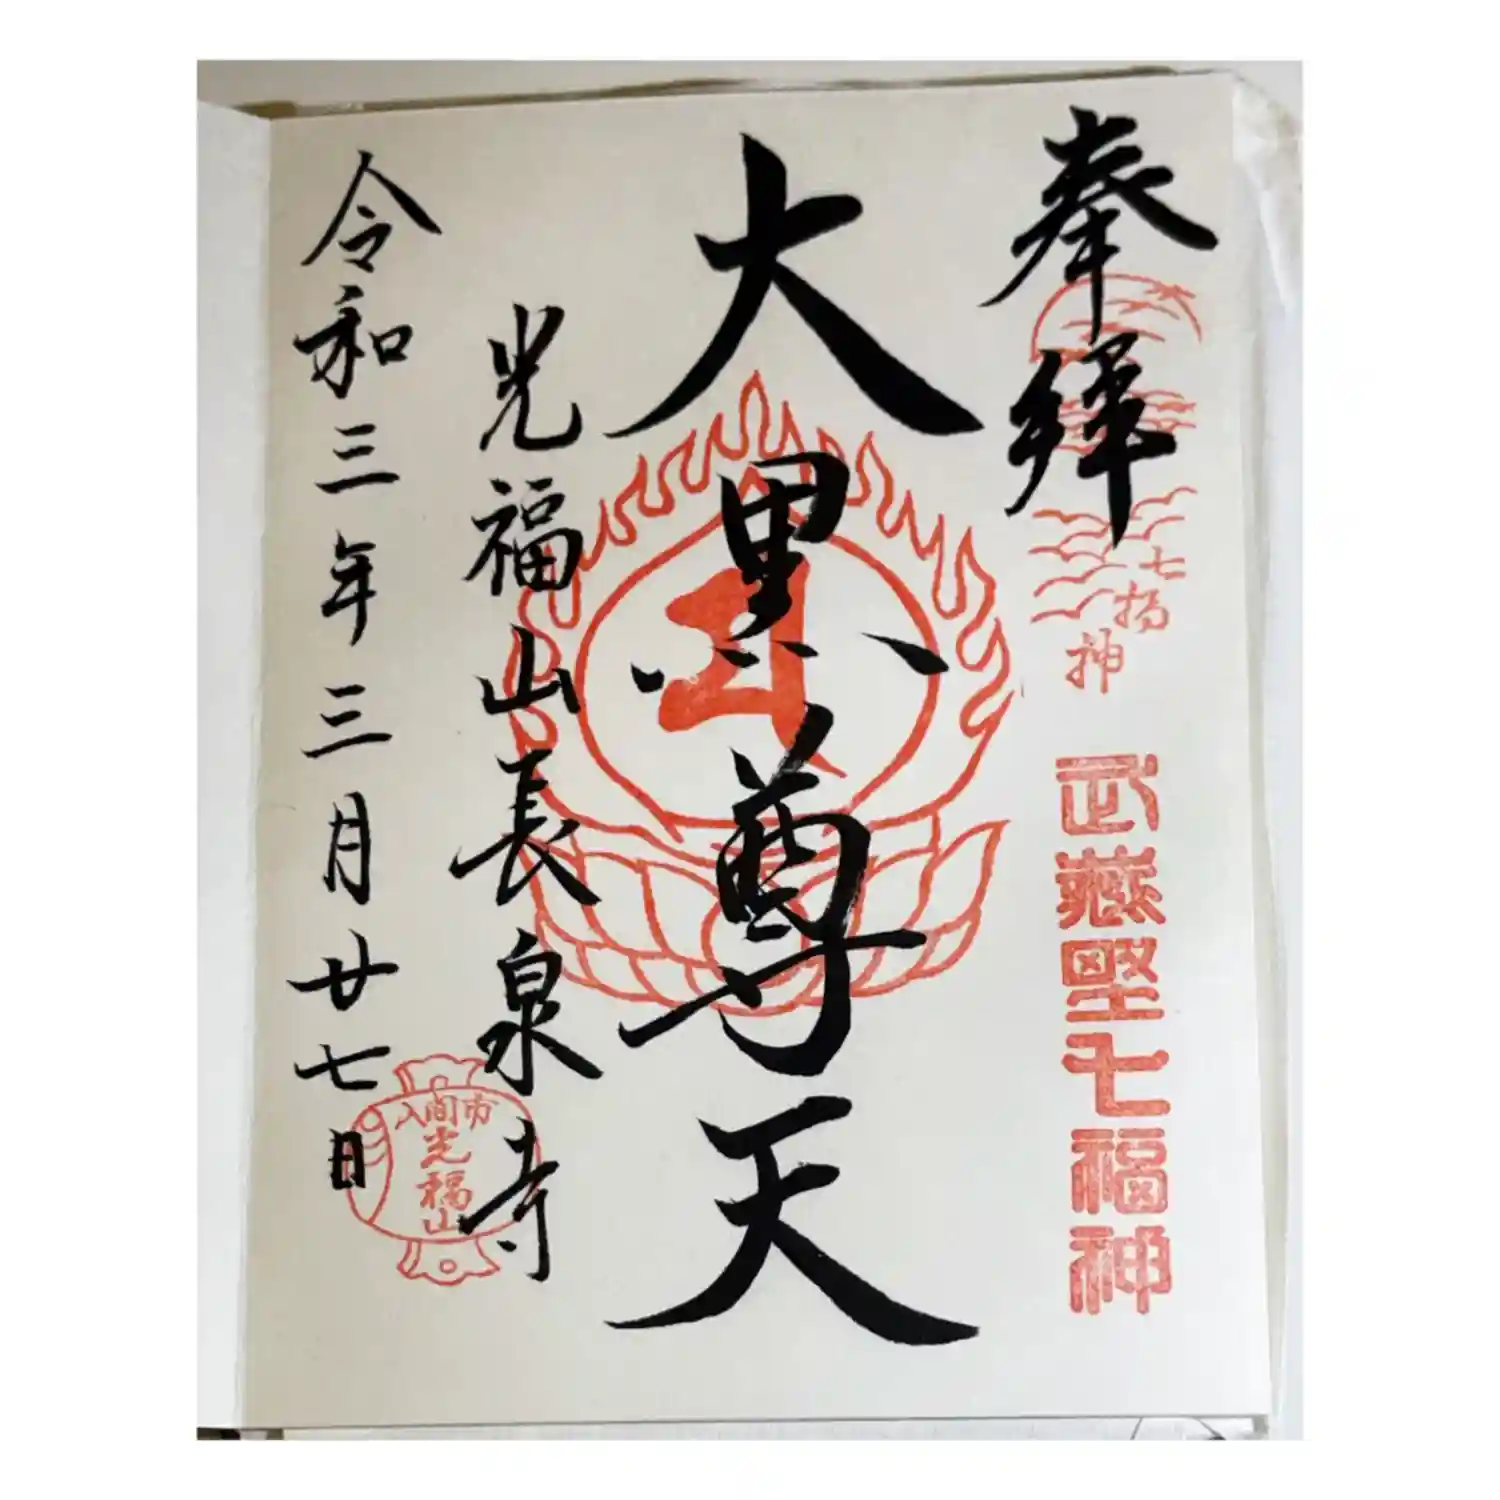 奉拝
七福神
武蔵野七福神
大黒尊天
光福山長泉寺
入間市
光福山
令和三年三月廿七日